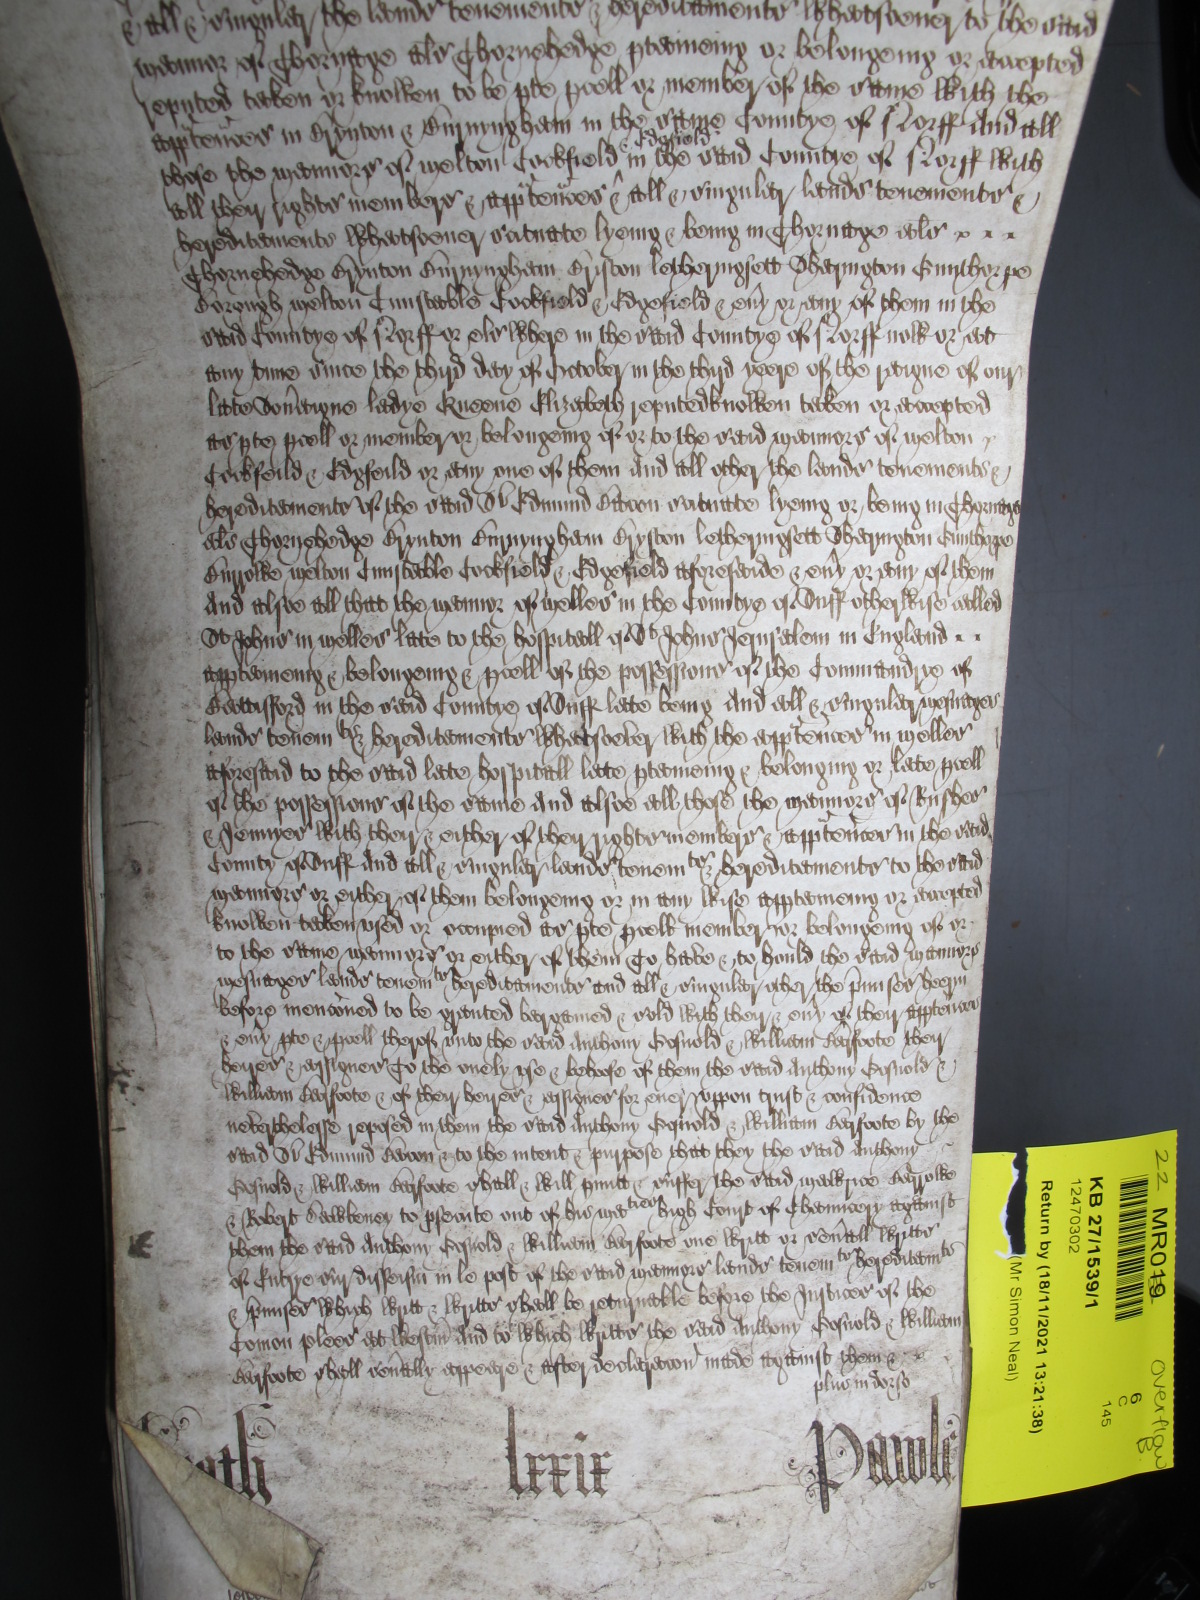 & all & singuler the lands tenements & hereditaments whatsoever to the said
mannor of Thornage als Thornehedge pteineing or belongeing or accepted
reputed taken or knowen to be pte pcell or member of the same with the
apptences in Brynton & Burnyngham in the same Countye of Norff And all
those the mannors of Melton Cockfield & Edgfield in the said Countye of Norff with
all their rights members & apptences & all & singuler lands tenements &
hereditaments whatsoever scituate lyeing & being in Thornage als
Thornehedge Brynton Burnyngham Bryston Letheringsett Sharington Gunthorpe
Borough Melton Cunstable Cockfield & Edgefield & eny or any of them in the
said Countye of Norff or els where in the said Countye of Norff nowe or at
any time since the third day of October in the third yeere of the raigne of our
late Soveraigne Ladye Queene Elizabeth reputed knowen taken or accepted
as pte pcell or member or belongeing of or to the said mannors of Melton
Cockfeild & Edgfeild or any one of them And all other the lands tenements &
hereditaments of the said Sr Edmund Bacon scituate lyeing or being in Thornage
als Thornehedge Brynton Burnyngham Bryston Letheringsett Sharington Gunthorpe
Burrowe Melton Cunstable Cockfield & Edgefield aforesaide & eny or any of them
And alsoe all that the mannor of Melles in the Countye of Suff otherwise called
St Johns in Melles late to the hospitall of St Johns Jerusalem in England
appteineing & belongeing & pcell of the possessions of the Commandrie of
Battisford in the said Countye of Suff late being And all & singuler mesuages
lands tenemts & hereditaments whatsoever with the apptences in Melles
aforesaid to the said late hospitall late pteineing & belonging or late pcell
of the possessions of the same And alsoe all those the mannors of Rushes
& Jennyes with their & either of their rights members & apptences in the said
County of Suff And all & singuler lands tenemts & hereditaments to the said
mannors or either of them belongeing or in any wise appteineing or accepted
knowen taken used or occupied as pte pcell member or belongeing of or
to the same mannors or either of them To have & to hould the said mannors
mesuages lands tenemts hereditaments and all & singuler other the pmises herein
before menconed to be graunted bargained & sold with their & eny of their apptences
& eny pte & pcell therof unto the said Anthony Gosnold & William Barfoote their
heires & assignes To the onely use & behoofe of them the said Anthony Gosnold &
William Barfoote & of their heires & assignes for ever uppon trust & confidence
neverthelesse reposed in them the said Anthony Gosnold & William Barfoote by the
said Sr Edmund Bacon & to the intent & purpose that they the said Anthony
Gosnold & William Barfoote shall & will pmitt & suffer the said Mawrice Barrowe
& Robert Dawbeney to psecute out of his maties high Court of Chauncery against
them the said Anthony Gosnold & William Barfoote one writt or severall writts
of Entrye sur disseisin in le post of the said mannors lands tenemts hereditamts
& pmises which writt & writts shall be retournable before the Justices of the
Comon plees at Westm And to which writts the said Anthony Gosnold & William
Barfoote shall seually appeare & after declaracon made against them &
plus in dorso
lxxix
22 MR019
KB 27/1539/1
12470302
Return by (18/11/2021 13:21:38)
(Mr Simon Neal)
6
C
145
Overflow
B